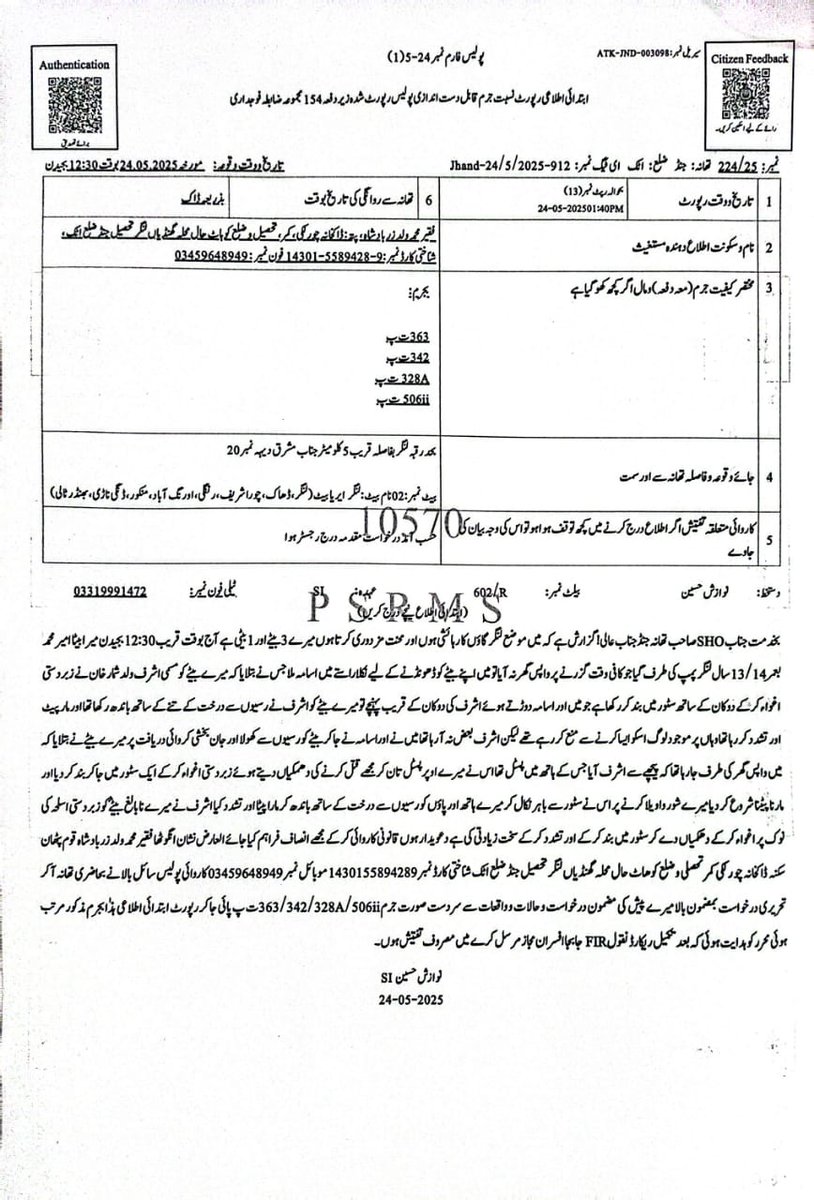 پولیس فارم نمبر 24-5(1)
سیریل نمبر: ATK-JND-003098
Authentication
برائے تصدیق
Citizen Feedback
رائے کے لیے اسکین کریں۔
ابتدائی اطلاعی رپورٹ نسبت جرم قابل دست اندازی پولیس رپورٹ شدہ زیر دفعہ 154 مجموعہ ضابطہ فوجداری
نمبر: 224/25 تھانہ: جنڈ ضلع: اٹک ای ٹیگ نمبر: Jhand-24/5/2025-912 تاریخ و وقت وقوعہ: مورخہ 24.05.2025 بوقت 12:30 بجے دن
1 تاریخ و وقت رپورٹ بحوالہ رپٹ نمبر (13)
24-05-2025 01:40PM
6 تھانہ سے روانگی کی تاریخ بوقت بذریعہ ڈاک
2 نام و سکونت اطلاع دہندہ مستغیث فقیر محمد ولد زر بادشاہ، پتہ: ڈاکخانہ چورلکی، کمر، تحصیل و ضلع کوہاٹ حال محلہ گھنڈیاں لنگر تحصیل جنڈ ضلع اٹک،
شناختی کارڈ نمبر: 14301-5589428-9 فون نمبر: 03459648949
3 مختصر کیفیت جرم (معہ دفعہ) و مال اگر کچھ کھو گیا ہے بجرم:
363 ت پ
342 ت پ
328A ت پ
506ii ت پ
4 جائے وقوعہ و فاصلہ تھانہ سے اور سمت بحد رقبہ لنگر بفاصلہ قریب 5 کلومیٹر جناب مشرق دیہہ نمبر 20
بیٹ نمبر: 02 نام بیٹ: لنگر ایریا بیٹ (لنگر، ڈھاک، چورا شریف، رنگلی، اورنگ آباد، منکور، ڈنگی تاڑی، بھنڈر نالی)
5 کاروائی متعلقہ تفتیش اگر اطلاع درج کرنے میں کچھ توقف ہوا ہو تو اس کی وجہ بیان کی جاوے حسب آمدہ درخواست مقدمہ درج رجسٹر ہوا
10570
دستخط: نوازش حسین بیلٹ نمبر: 602/R عہدہ: SI ٹیلی فون نمبر: 03319991472
PSRMS
(ابتدائی اطلاع نیچے درج کریں)
بخدمت جناب SHO صاحب تھانہ جنڈ جناب عالی! گزارش ہے کہ میں موضع لنگر گاؤں کا رہائشی ہوں اور محنت مزدوری کرتا ہوں میرے 3 بیٹے اور 1 بیٹی ہے آج بوقت قریب 12:30 بجے دن میرا بیٹا امیر محمد
بعمر 13/14 سال لنگر پمپ کی طرف گیا جو کافی وقت گزرنے پر واپس گھر نہ آیا تو میں اپنے بیٹے کو ڈھونڈنے کے لیے نکلا راستے میں اسامہ ملا جس نے بتلایا کہ میرے بیٹے کو مسمی اشرف ولد شمار خان نے زبردستی
اغواء کر کے دوکان کے ساتھ سٹور میں بند کر رکھا ہے جو میں اور اسامہ دوڑتے ہوئے اشرف کی دوکان کے قریب پہنچے تو میرے بیٹے کو اشرف نے رسیوں سے درخت کے تنے کے ساتھ باندھ رکھا تھا اور مار پیٹ
اور تشدد کر رہا تھا وہاں پر موجود لوگ اسکو ایسا کرنے سے منع کر رہے تھے لیکن اشرف بعض نہ آ رہا تھا میں نے اور اسامہ نے جا کر بیٹے کو رسیوں سے کھولا اور جان بخشی کروائی دریافت پر میرے بیٹے نے بتلایا کہ
میں واپس گھر کی طرف جا رہا تھا کہ پیچھے سے اشرف آیا جس کے ہاتھ میں پسٹل تھا اس نے میرے اوپر پسٹل تان کر مجھے قتل کرنے کی دھمکیاں دیتے ہوئے زبردستی اغواء کر کے ایک سٹور میں جا کر بند کر دیا اور
مارنا پیٹنا شروع کر دیا میرے شور واویلا کرنے پر اس نے سٹور سے باہر نکال کر میرے ہاتھ اور پاؤں کو رسیوں سے درخت کے ساتھ باندھ کر مارا پیٹا اور تشدد کیا اشرف نے میرے نابالغ بیٹے کو زبردستی اسلحہ کی
نوک پر اغواء کر کے دھمکیاں دے کر سٹور میں بند کر کے اور تشدد کر کے سخت زیادتی کی ہے دعویدار ہوں قانونی کاروائی کر کے مجھے انصاف فراہم کیا جائے العارض نشان انگوٹھا فقیر محمد ولد زر بادشاہ قوم پٹھان
سکنہ ڈاکخانہ چورلکی کمر تحصلی و ضلع کوھاٹ حال محلہ گھنڈیاں لنگر تحصیل جنڈ ضلع اٹک شناختی کارڈ نمبر 1430155894289 موبائل نمبر 03459648949 کاروائی پولیس سائل بالا نے بحاضری تھانہ آ کر
تحریری درخواست بمضمون بالا میرے پیش کی مضمون درخواست و حالات و واقعات سے سردست صورت جرم 363/342/328A/506ii ت پ پائی جا کر رپورٹ ابتدائی اطلاعی ہذا بجرم مذکور مرتب
ہوئی محرر کو ہدایت ہوئی کہ بعد تکمیل ریکارڈ نقول FIR جابجا افسران مجاز مرسل کرے میں مصروف تفتیش ہوں۔
نوازش حسین SI
24-05-2025